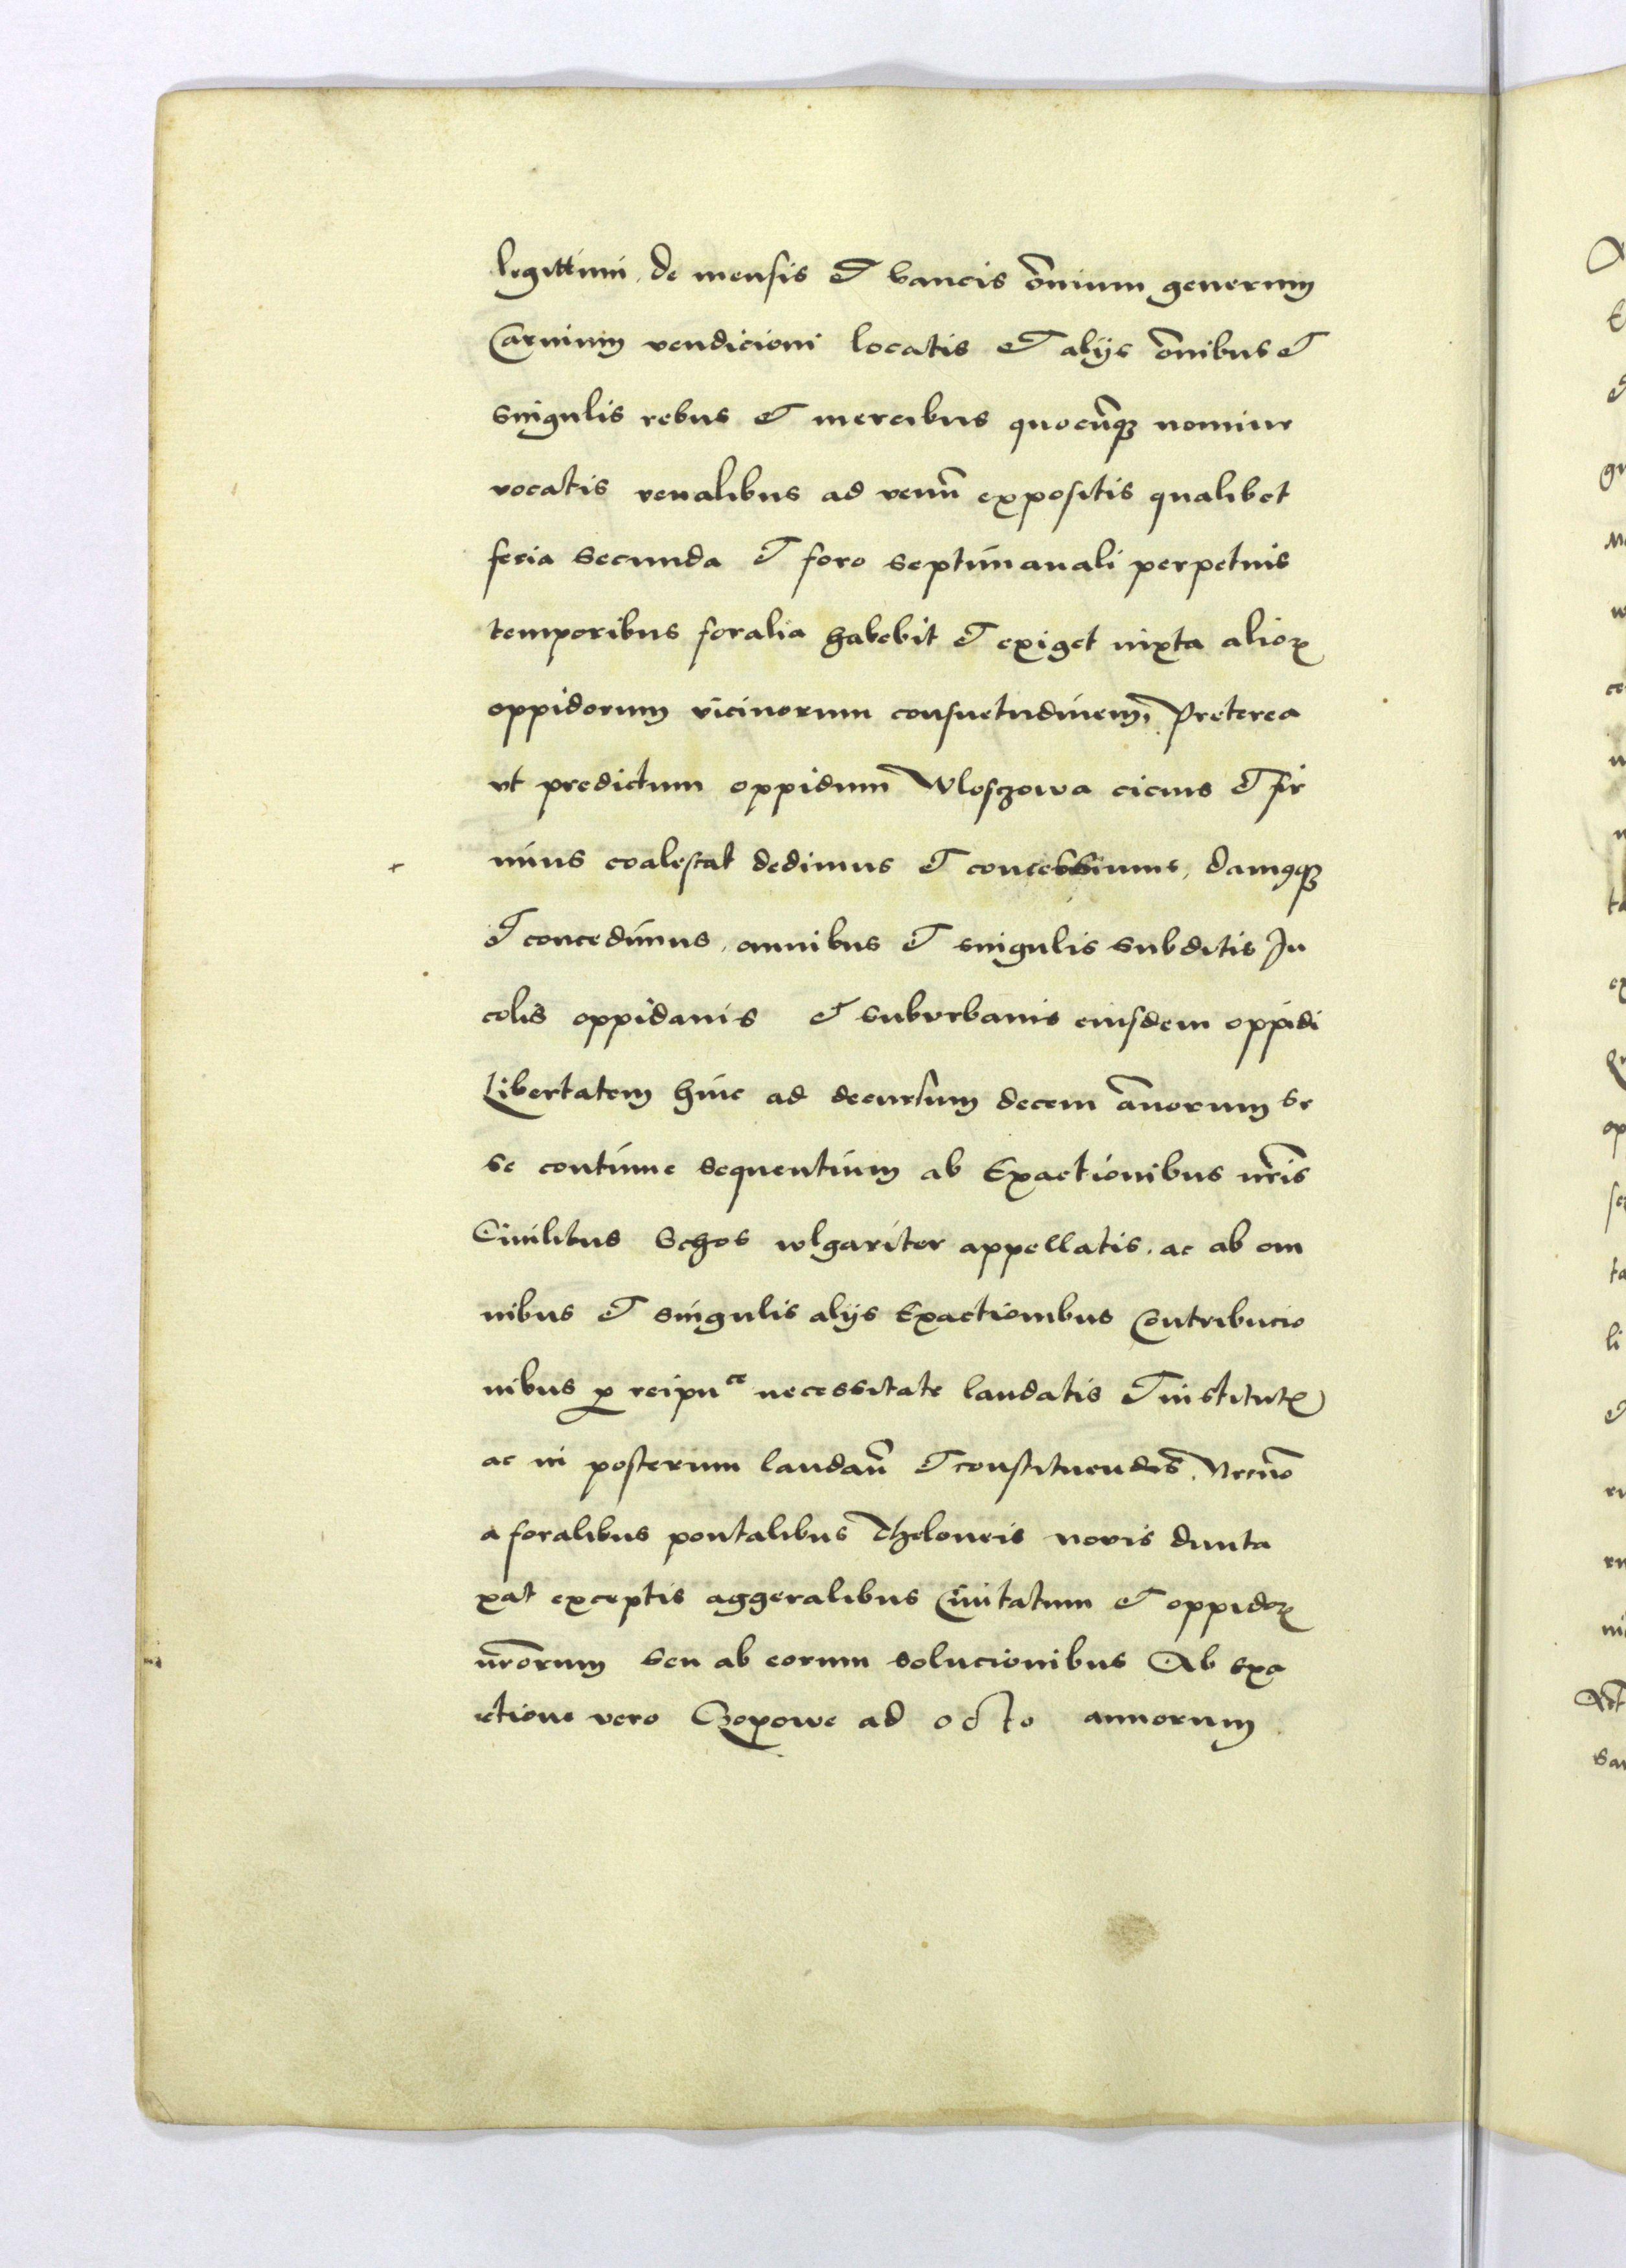 legittimi, de mensis et bancis o̅nium generum
Carnium vendicioni locatis et alijs o̅nibus et
singulis rebus et mercibus quocu̅qꝫ nomine
vocatis venalibus ad venu̅ expositis qualibet
feria secunda et foro septimanali perpetuis
temporibus foralia habebit et exiget iuxta alioꝝ
oppidorum vicinorum consuetudinem, Preterea
vt predictum oppidum Wlosczowa cicius et fir
mius coalescat dedimus et concessimus, damꝰqꝫ
et concedimus, omnibus et singulis subditis In
colis oppidanis et suburbanis eiusdem oppidi
Libertatem hinc ad decursum decem a̅norum se
se continue sequentium ab Exactionibus nr̅is
Ciuilibus Schos wlgariter appellatis, ac ab om
nibus et singulis alijs Exactionibus Contribucio
nibus ꝓ reipuce necessitate laudatis et institutꝭ
ac in posterum laudan̅ et constituendis, Necno̅
a foralibus pontalibus Theloneis novis dunta
xat exceptis aggeralibus Ciuitatum et oppidoꝝ
nr̅orum seu ab eorum solucionibus Ab exa
ctione vero Czopowe ad octo annorum